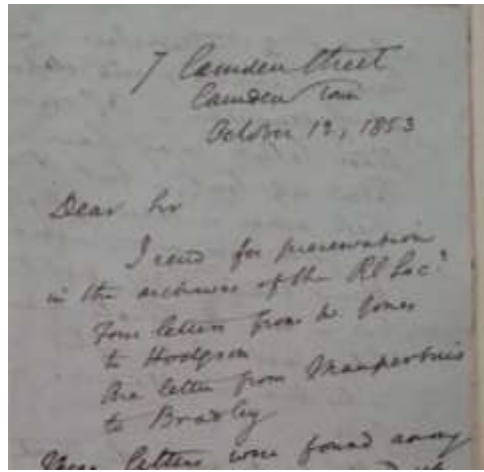 7 Camden Street
Camden Town
October 12, 1853
Dear Sir
I send for preservation
in the archives of the Rl Soc?
Four letters from W Jones
to Hodgson
One letter from Maupertuis
to Bradley
These letters were found among